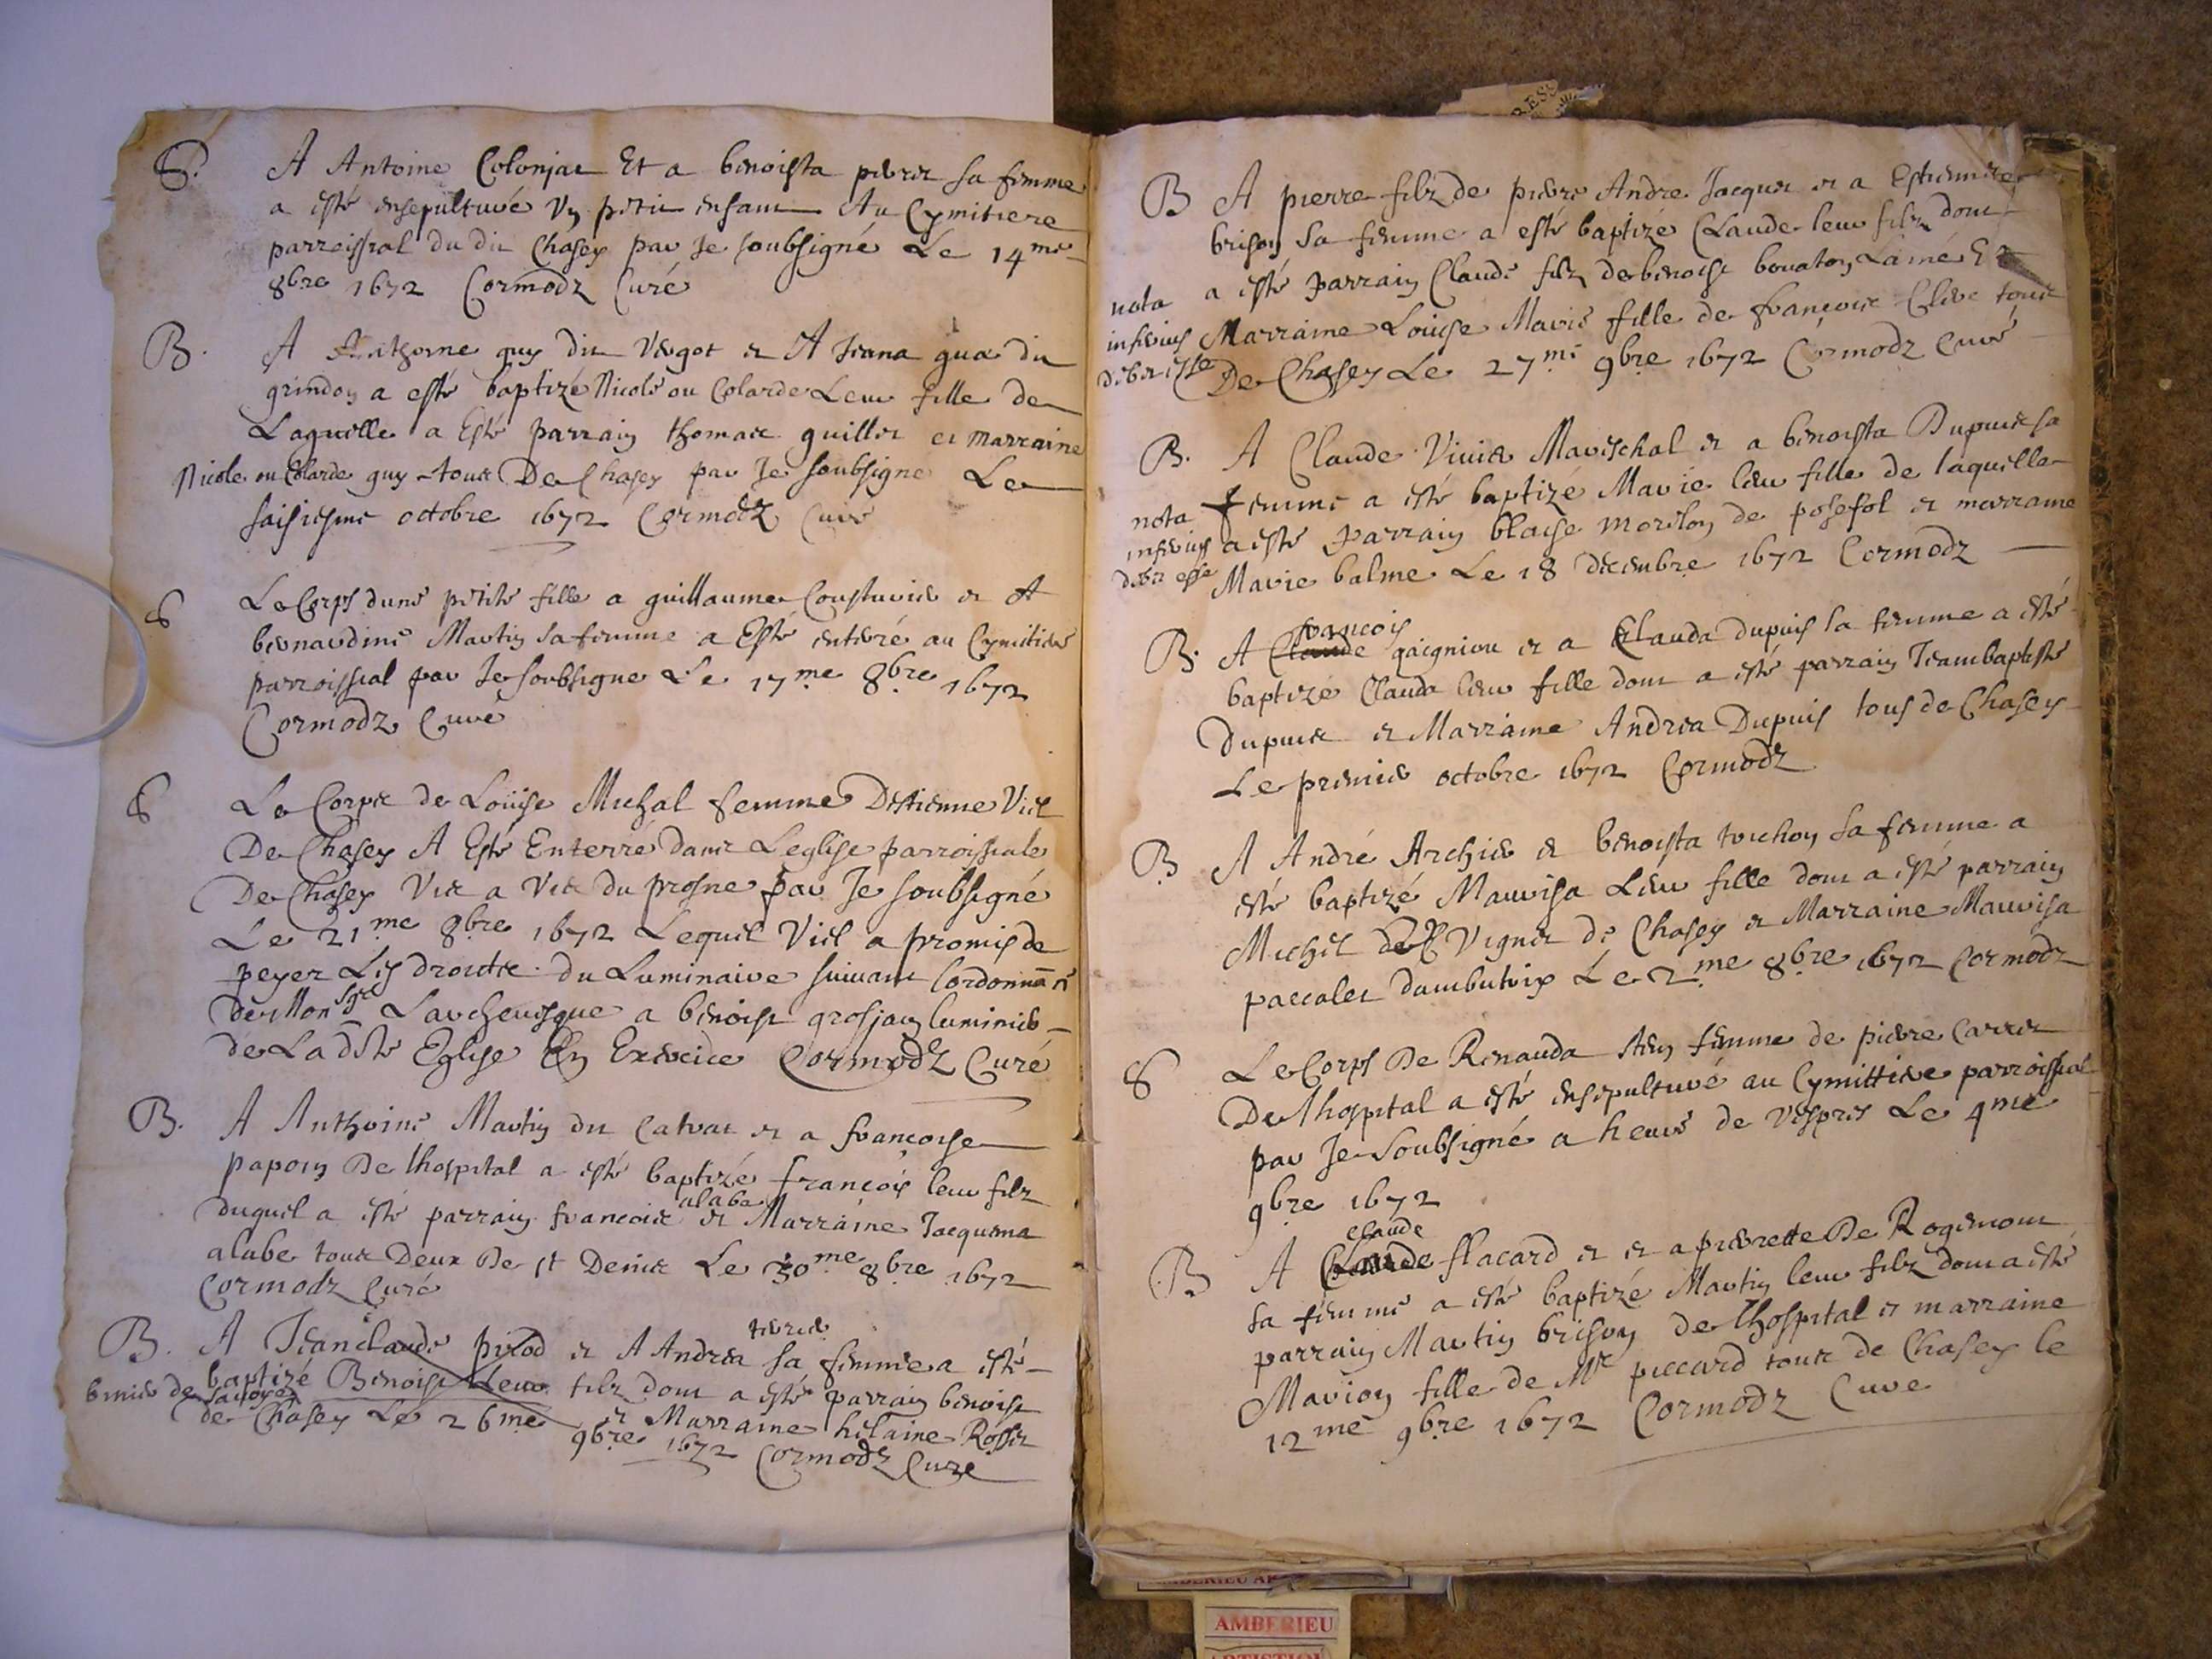 S. A Antoine Colonjat Et a benoista pierre sa femme
a esté ensepulturé Un petit enfant Au Cymitiere
parroissial du dit Chasey par Je soubsigné Le 14me
8bre 1672 Cormodz Curé
B. A Anthoine guy dit Vergot et A Jeana gua du
grindon a esté baptizé Nicole ou Colarde Leur fille de
Laquelle a Esté parrain thomas guillet et marraine
Nicole ou Colarde guy tous De Chasey par Je soubsigné Le
saisiesme octobre 1672 Cormodz Curé
S Le Corps dune petite fille a guillaume Cousturier et A
bernardine Martin sa femme a Esté enterré au Cymitiere
parroissial par Je soubsigne Le 17me 8bre 1672
Cormodz Curé
S Le Corps de Loüise Michal femme Destienne Viel
De Chasey A Esté Enterré dans Leglise parroissiale
De Chasey Vis a Vis du prosne par Je soubsigné
Le 21me 8bre 1672 Lequel Viel a promis de
peyer Les droits du Luminaire suivant lordonnāce
de Monsgr Larchevesque a benoist grosjan luminier
de Ladite Eglise En Exercice Cormodz Curé
B. A Anthoine Martin dit Catvat et a francoise
papon De lhospital a esté baptizé francois leur filz
duquel a esté parrain francois alabe et Marraine Jacquema
alabe tous Deux De st Denis Le 30me 8bre 1672
Cormodz Curé
B. A Jeanclaude pirod et A Andrea terrier sa femme a esté
baptizé Benoist Leur filz dont a esté parrain benoist
bernier de savoye et Marraine hélaine Rosset
de Chasey Le 26me 9bre 1672 Cormodz Cure
B A pierre filz de pierre Andre Jacquet et a Estiennete
brison sa femme a esté baptizé Claude leur filz dont
a esté parrain Claude filz de benoist bovaton Lainé Et
nota inferius debet esse
Marraine Louise Marie fille de francois Clere tous
De Chasey Le 27me 9bre 1672 Cormodz Curé
B. A Claude Marischal et a benoista Dupuis sa
femme a esté baptizé Marie leur fille de laquelle
nota inferius debet esse
a esté parrain blaise morilon de posefol et marraine
Marie balme Le 18 decembre 1672 Cormodz
B. A Claude francois gaigniere et a Clauda dupuis sa femme a esté
baptizé Clauda leur fille dont a esté parrain Jeambaptiste
dupuis et Marraine Andrea Dupuis tous de Chasey
Le premier octobre 1672 Cormodz
B A André Archier et benoista torchon sa femme a
esté baptizé Maurisa Leur fille dont a esté parrain
Michel Vignet de Chasey et Marraine Maurisa
paccalet dambutrix Le 2me 8bre 1672 Cormodz
S Le Corps De Renauda femme de pierre Carret
De lhospital a esté ensepulturé au Cymittiere parroissial
par Je soubsigné a heure de Vespres Le 4me
9bre 1672
B A Claude claude flacard et et a pierrette De Rogemont
sa femme a esté baptizé Martin leur filz dont a esté
parrain Martin brison de lhospital et marraine
Marion fille de Mr piccard tous de Chasey le
12me 9bre 1672 Cormodz Cure
AMBERIEU